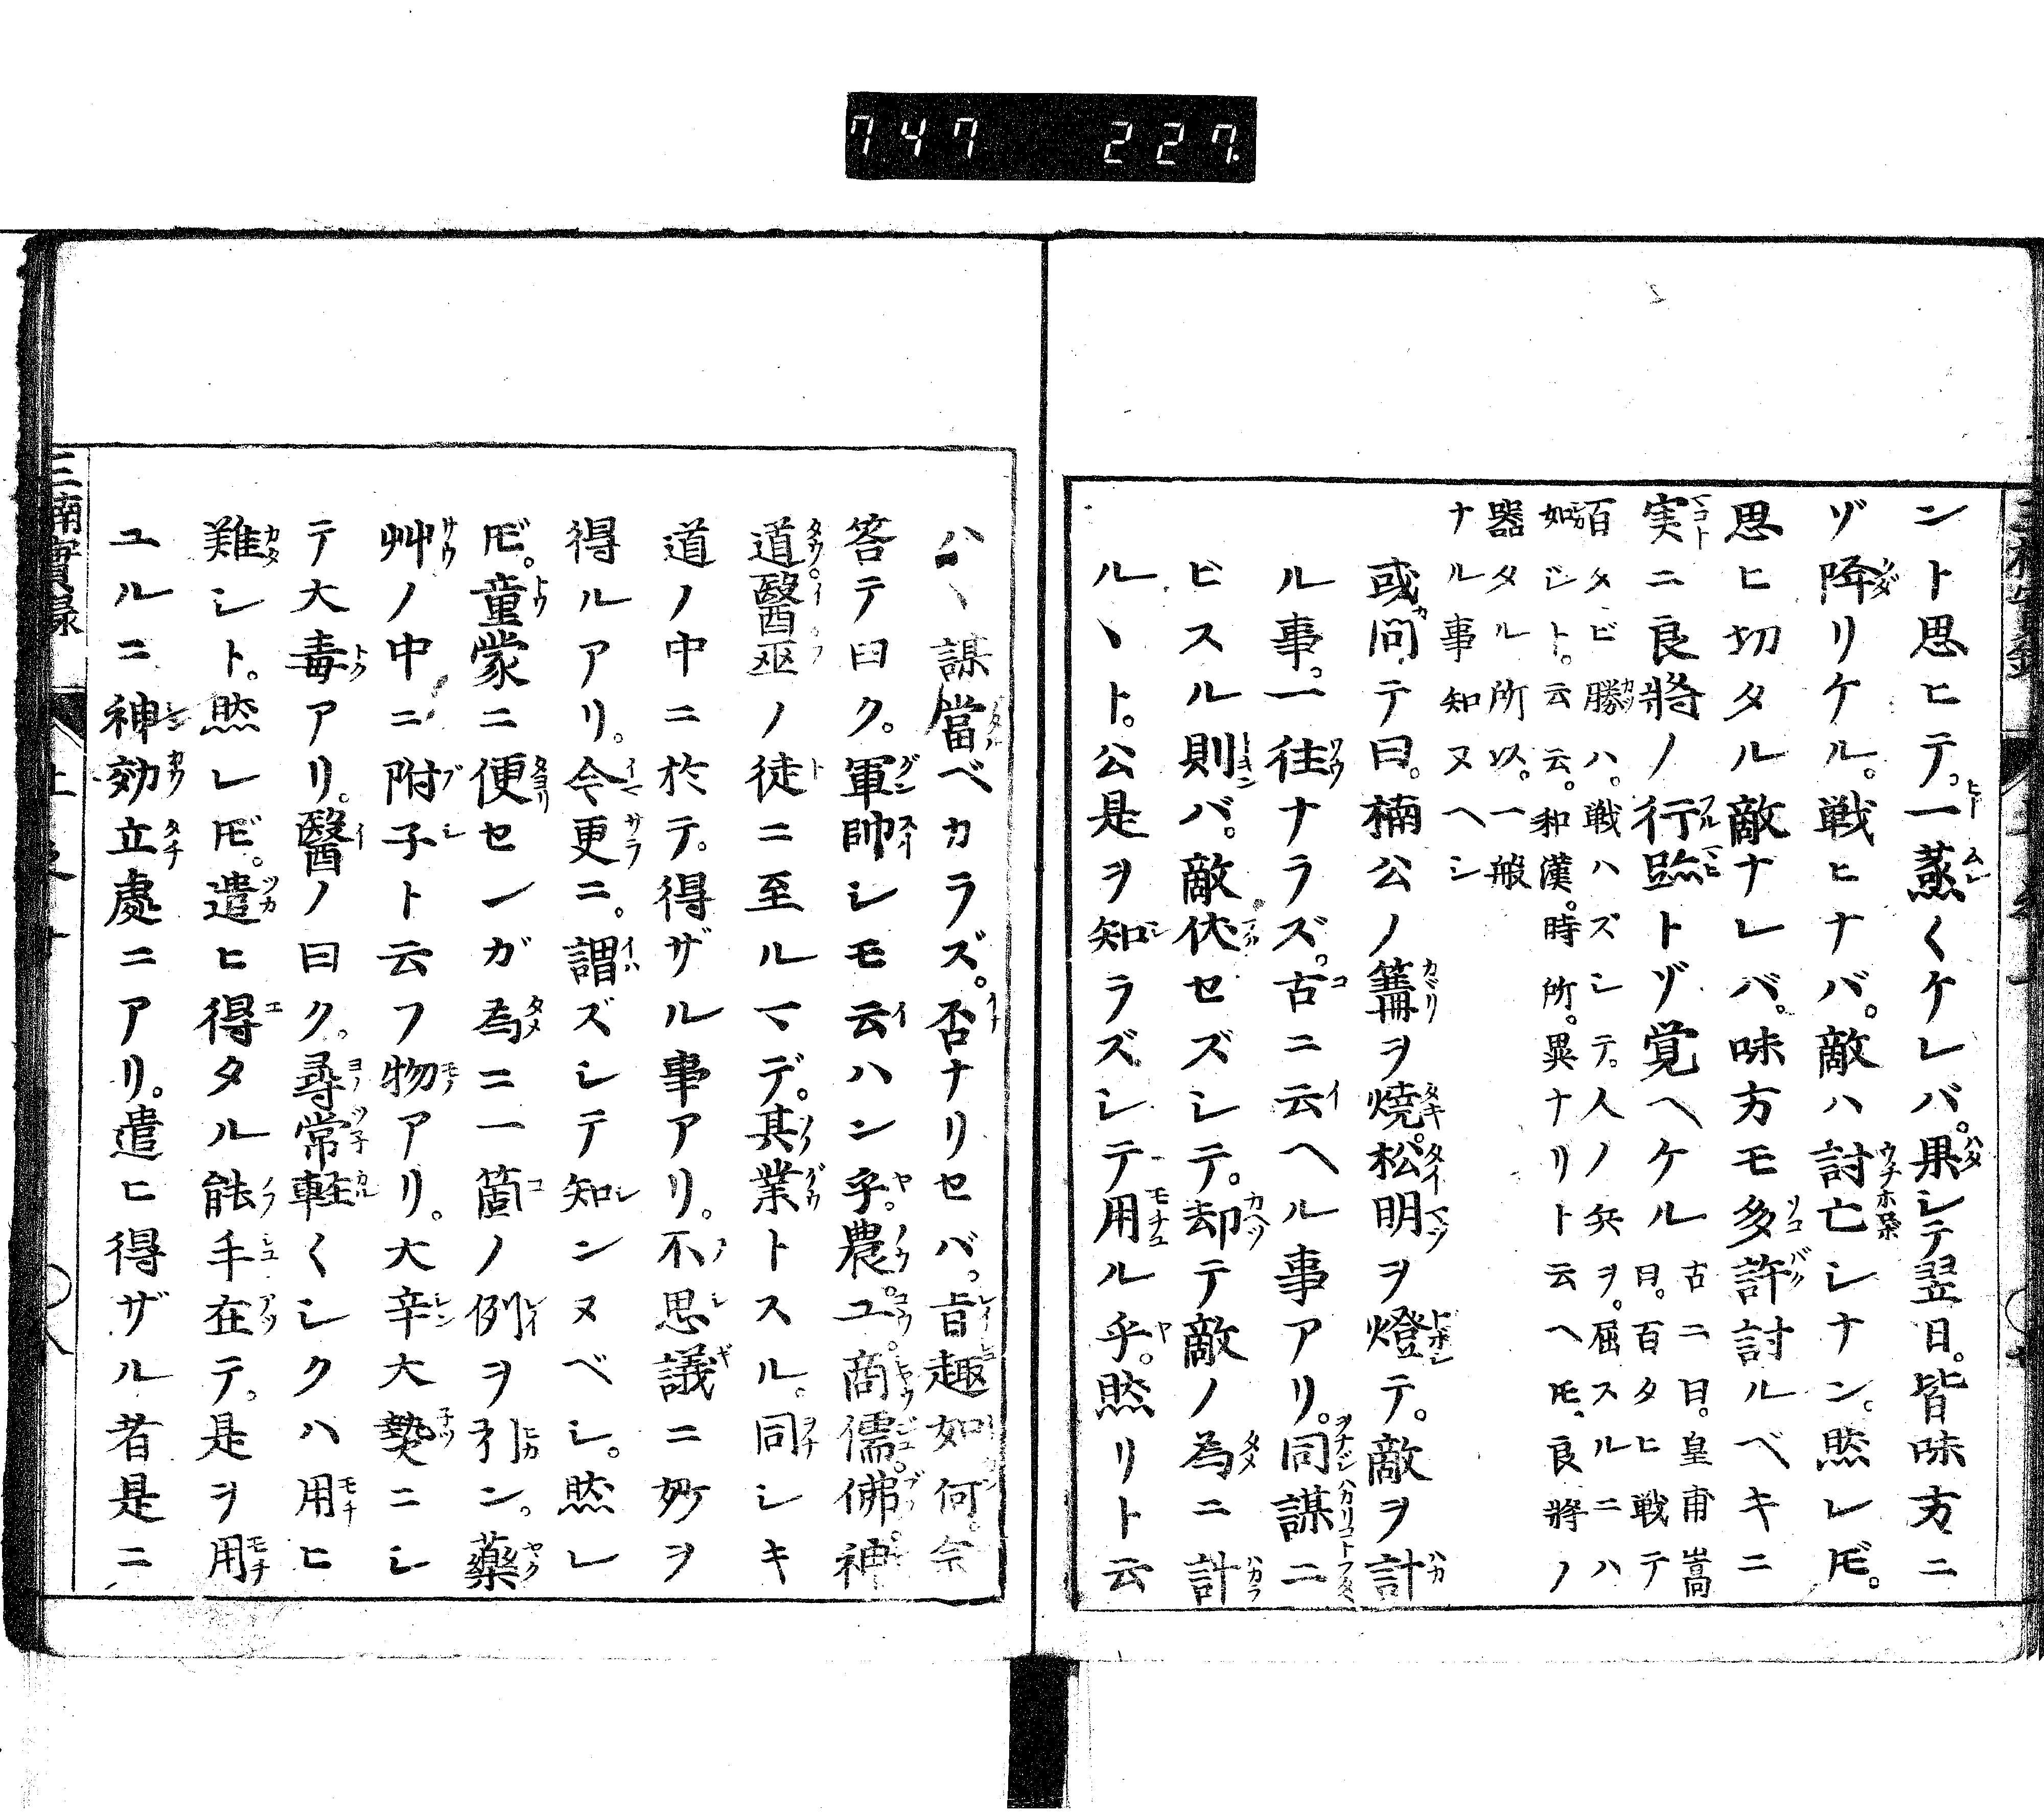 747 227.
ント思ヒテ。一蒸〱ケレバ。果シテ翌日。皆味方ニ
ゾ降リケル。戦ヒナバ。敵ハ討亡シナン。然レ𪜈。
思ヒ切タル敵ナレバ。味方モ多許討ルベキニ
実ニ良將ノ行跡トゾ覚ヘケル
古ニ曰。皇甫嵩
曰。百タヒ戦テ
百タビ勝ハ。戦ハズシテ。人ノ兵ヲ。屈スルニハ
如ジト。云云。和漢。時所。異ナリト云ヘ𪜈、良將ノ
器タル所以。一般
ナル事知ヌヘシ
或問テ曰。楠公ノ篝ヲ燒。松明ヲ燈テ。敵ヲ計
ル事。一往ナラズ。古ニ云ヘル事アリ。同謀ニ
ビスル則バ。敵伏セズシテ。却テ敵ノ為ニ計
ルヽト。公是ヲ知ラズシテ用ル乎。然リト云
ハヽ謀當ベカラズ。否ナリセバ。旨趣如何。
答テ曰ク。軍帥シモ云ハン乎。農。工。商。儒。佛。神
道。醫巫ノ徒ニ至ルマデ。其業トスル。同シキ
道ノ中ニ於テ。得ザル事アリ。不思議ニ妙ヲ
得ルアリ。今更ニ。謂ズシテ知ンヌベシ。然レ
𪜈。童蒙ニ便センガ為ニ一箇ノ例ヲ引ン。藥
艸ノ中ニ附子ト云フ物アリ。大辛大𤍠ニシ
テ大毒アリ。醫ノ曰ク。尋常軽〱シクハ用ヒ
難シト。然レ𪜈。遣ヒ得タル能手在テ。是ヲ用
ユルニ神効立處ニアリ。遣ヒ得ザル者是ニ
三楠實録